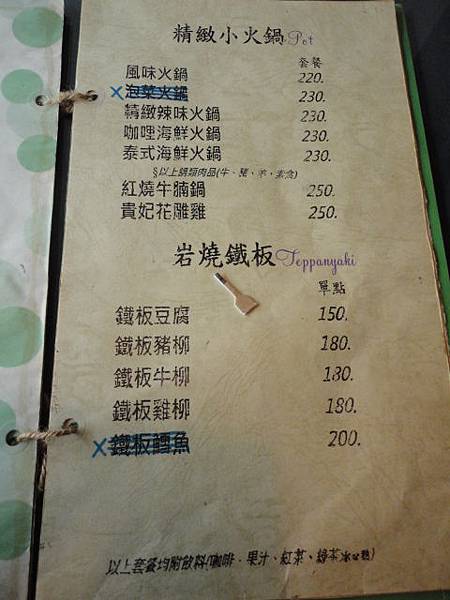 精緻小火鍋 Pot
套餐
風味火鍋 220.
X泡菜火鍋 230.
精緻辣味火鍋 230.
咖哩海鮮火鍋 230.
泰式海鮮火鍋 230.
§以上鍋類肉品(牛、豬、羊、素食)
紅燒牛腩鍋 250.
貴妃花雕雞 250.
岩燒鐵板 Teppanyaki
單點
鐵板豆腐 150.
鐵板豬柳 180.
鐵板牛柳 180.
鐵板雞柳 180.
X鐵板鱈魚 200.
以上套餐均附飲料(咖啡、果汁、紅茶、綠茶